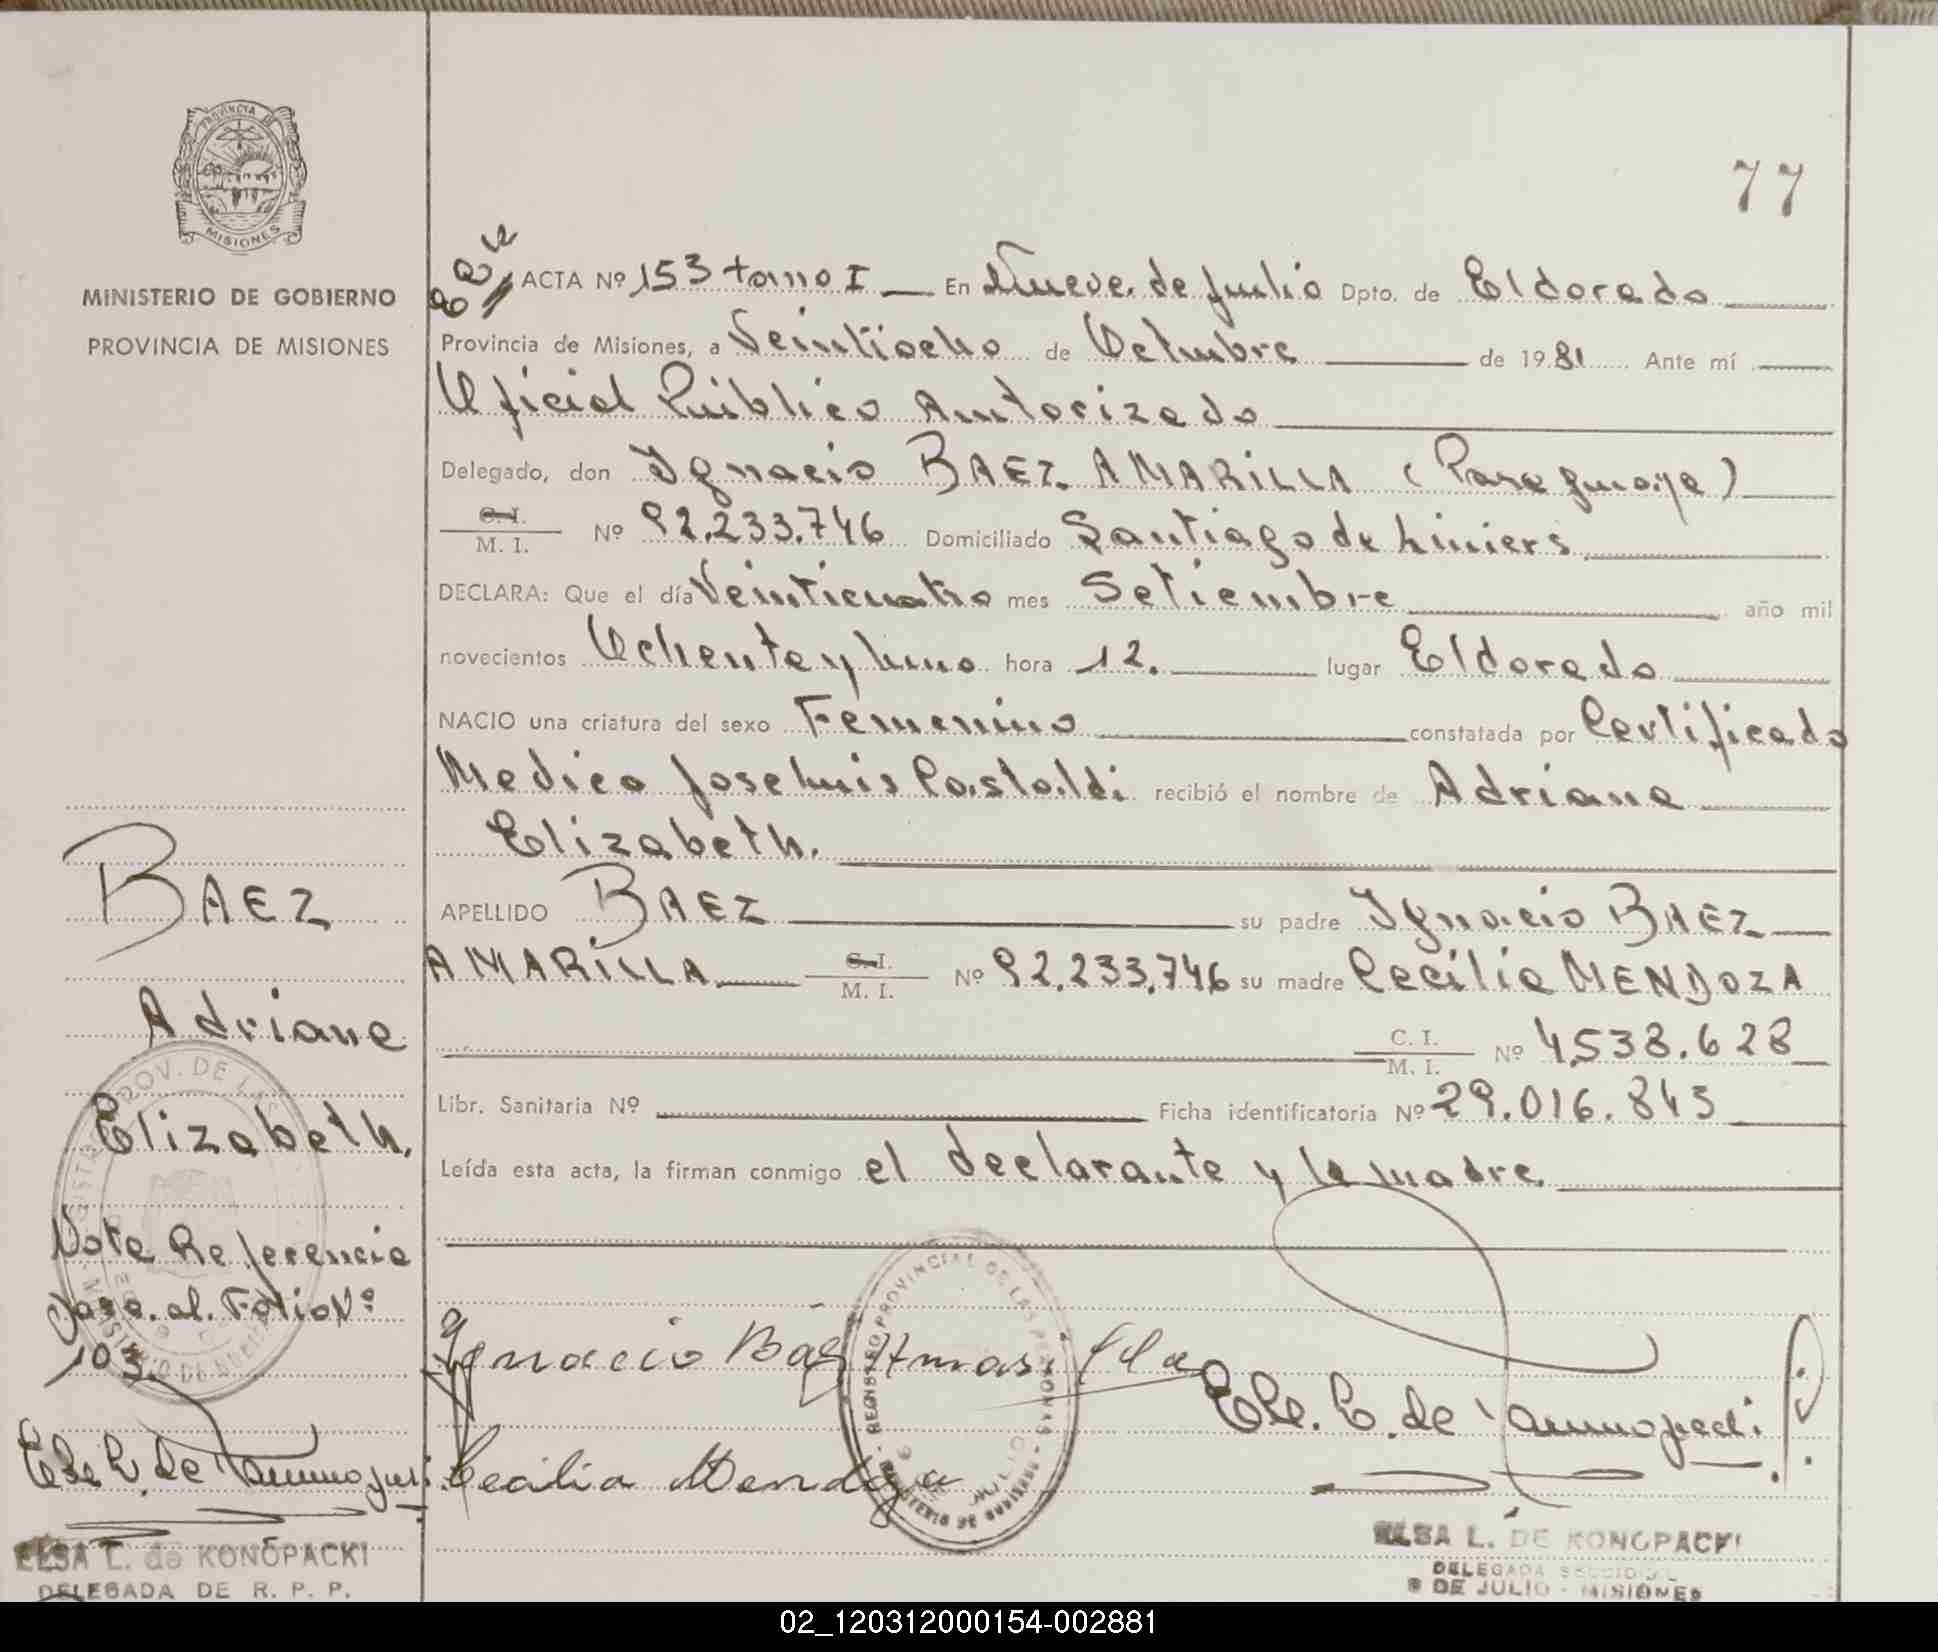 77
PROVINCIA DE
MISIONES
MINISTERIO DE GOBIERNO
PROVINCIA DE MISIONES
ACTA Nº 153 tomo I En Nueve de Julio Dpto. de Eldorado
Provincia de Misiones, a Veintiocho de Octubre de 1981 Ante mí
Oficial Público Autorizado
Delegado, don Ignacio BAEZ AMARILLA (Paraguaya)
C. I.
M. I. Nº 92.233.746 Domiciliado Santiago de Liniers
DECLARA: Que el día Veinticuatro mes Setiembre año mil
novecientos Ochenta y Uno hora 12. lugar Eldorado
NACIO una criatura del sexo Femenino constatada por Certificado
Medico Jose Luis Castaldi recibió el nombre de Adriana
Elizabeth.
APELLIDO BAEZ su padre Ignacio BAEZ
AMARILLA C. I. M. I. Nº 92.233.746 su madre Cecilia MENDOZA
C. I.
M. I. Nº 4.538.628
Libr. Sanitaria Nº Ficha identificatoria Nº 29.016.843
Leída esta acta, la firman conmigo el declarante y la madre.
BAEZ
Adriana
Elizabeth.
Nota Referencia
Pasa al Folio Nº
103
Ignacio Baez Amarilla
Cecilia Mendoza
REGISTRO PROVINCIAL DE LAS PERSONAS
ELSA L. de KONOPACKI
DELEGADA DE R. P. P.
ELSA L. DE KONOPACKI
DELEGADA SECCIONAL
9 DE JULIO - MISIONES
02_120312000154-002881